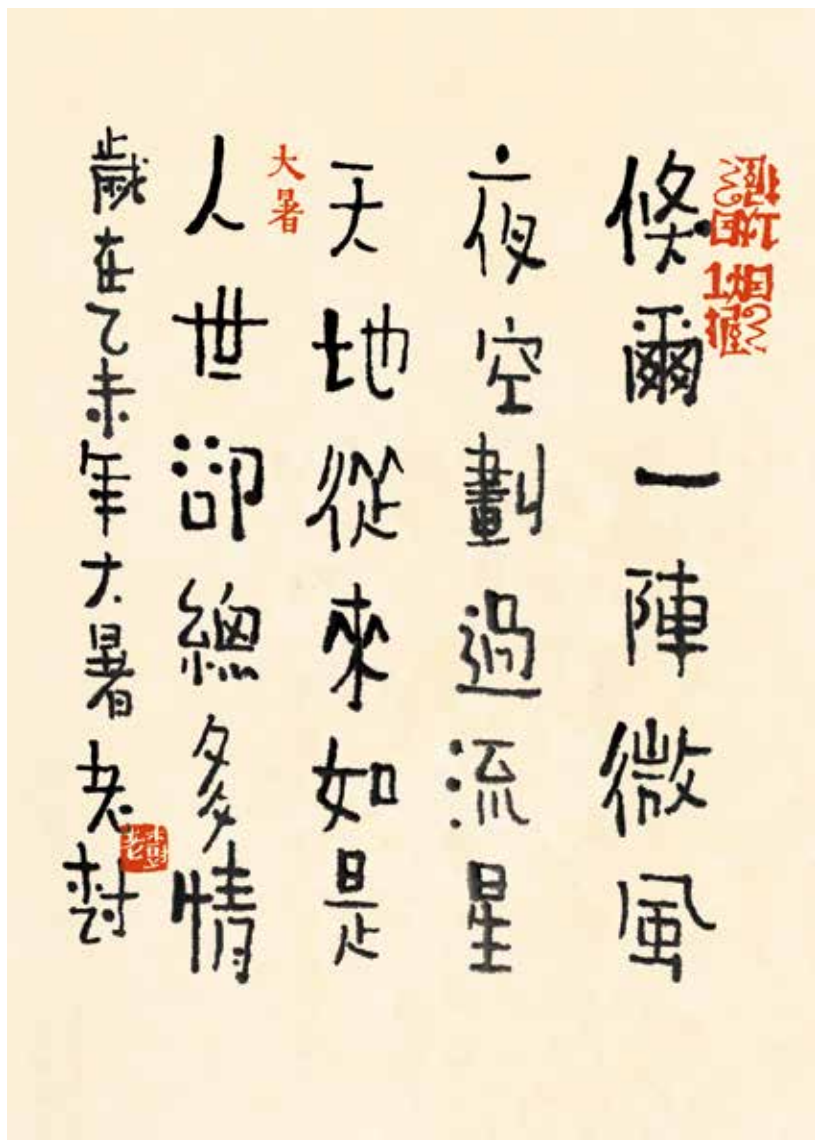 倏爾一陣微風
夜空劃過流星
天地從來如是
大暑
人世卻總多情
歲在乙未年大暑老樹